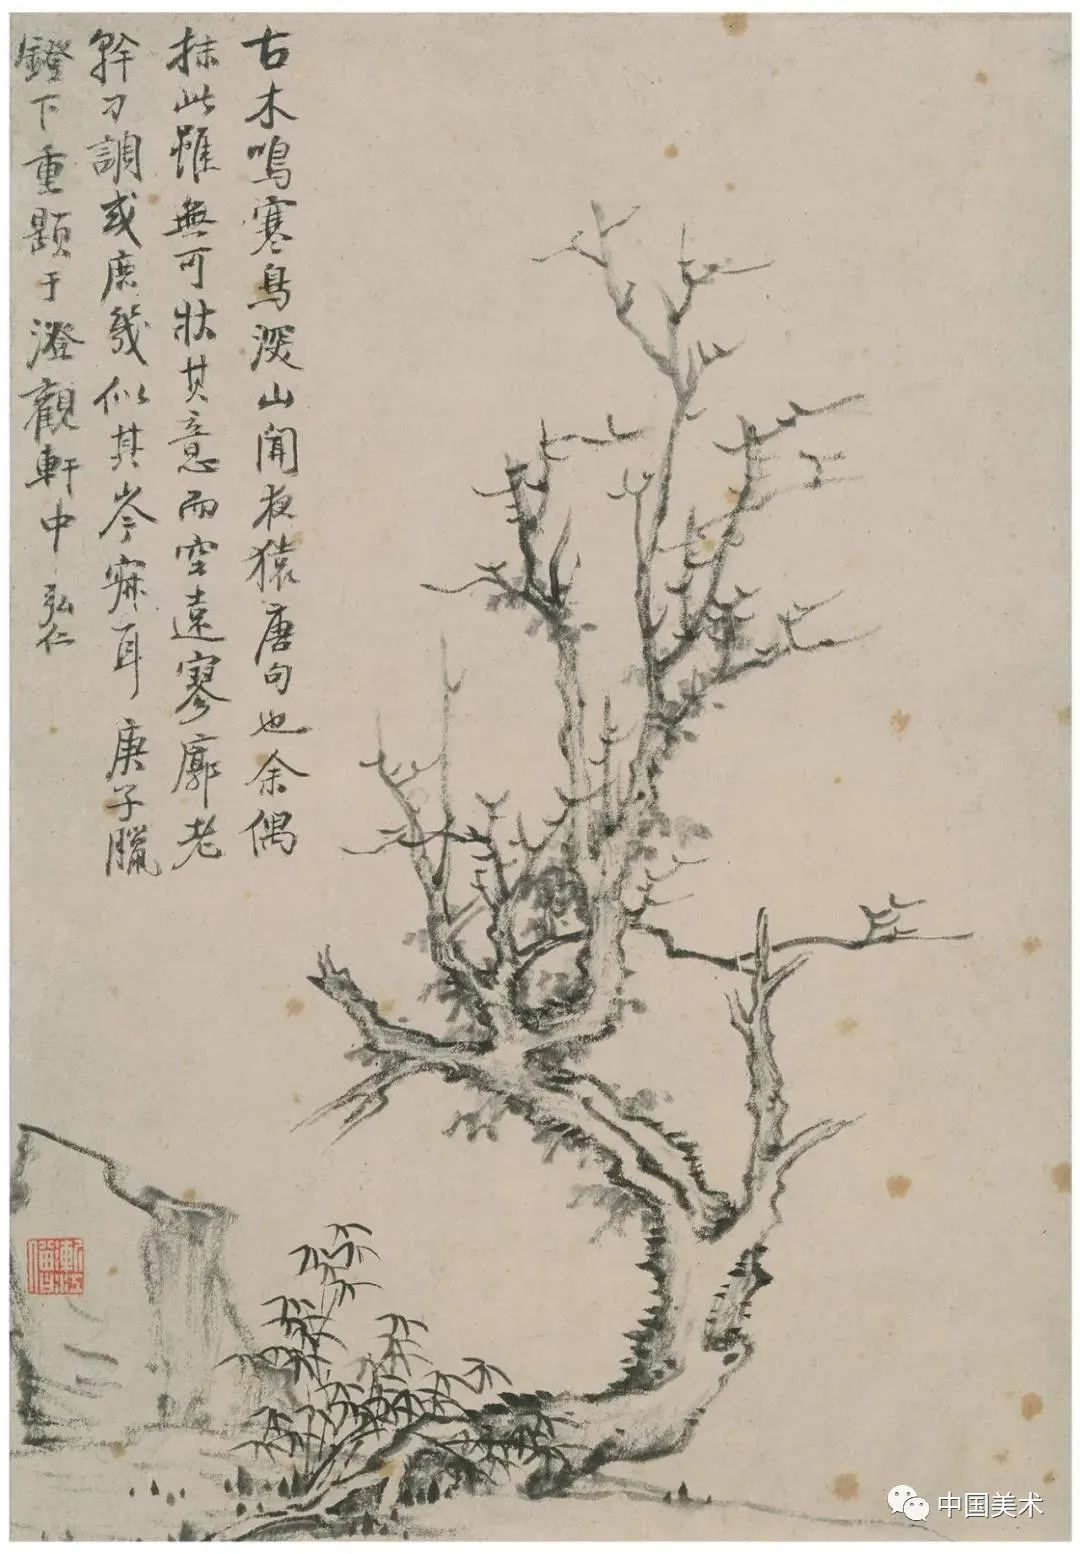 古木鳴寒鳥深山聞夜猿唐句也余偶
抹此雖無可狀其意而空遠寥廓老
幹刁調或庶幾似其岑寂耳庚子臘
鐙下重題于澄觀軒中弘仁
漸江僧
中国美术